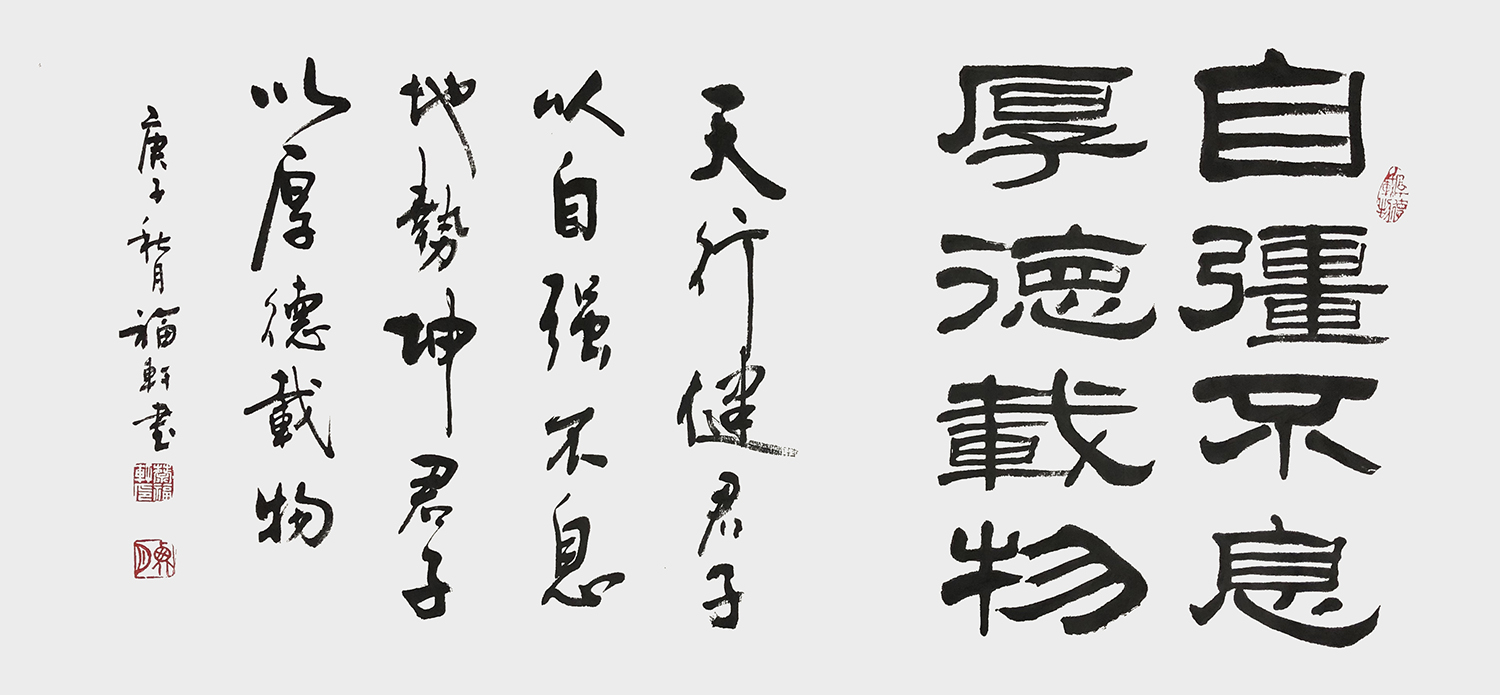 自彊不息
厚德載物
天行健君子
以自强不息
地勢坤君子
以厚德載物
庚子秋月福軒書